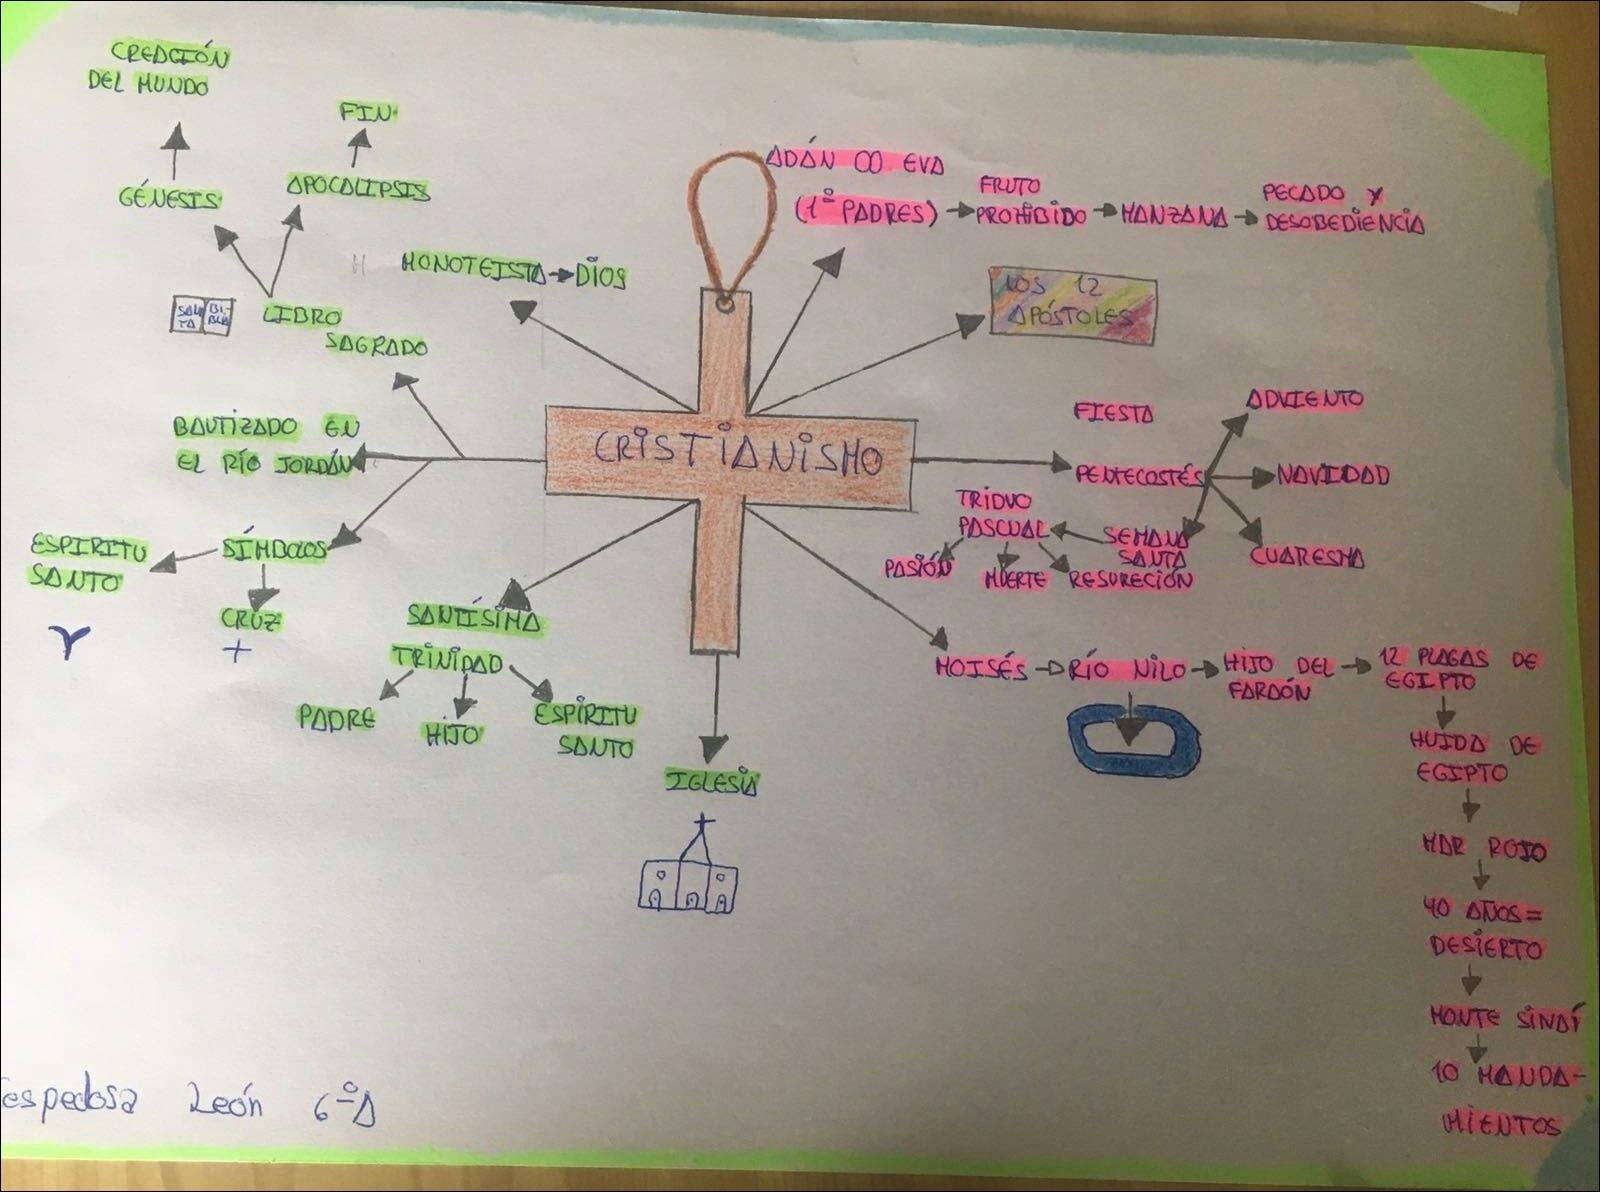 CREACIÓN
DEL MUNDO
FIN
GÉNESIS
APOCALIPSIS
SAN
TA
BI-
BLIA
LIBRO
SAGRADO
MONOTEISTA
DIOS
ADÁN ∞ EVA
(1º PADRES)
FRUTO
PROHIBIDO
MANZANA
PECADO Y
DESOBEDIENCIA
LOS 12
APÓSTOLES
CRISTIANISMO
BAUTIZADO EN
EL RÍO JORDÁN
SÍMBOLOS
ESPIRITU
SANTO
CRUZ
SANTÍSIMA
TRINIDAD
PADRE
HIJO
ESPÍRITU
SANTO
IGLESIA
FIESTA
PENTECOSTÉS
ADVIENTO
NAVIDAD
CUARESMA
SEMANA
SANTA
TRIDUO
PASCUAL
PASIÓN
MUERTE
RESURECIÓN
MOISÉS
RÍO NILO
HIJO DEL
FARAÓN
12 PLAGAS DE
EGIPTO
HUIDA DE
EGIPTO
MAR ROJO
40 AÑOS =
DESIERTO
MONTE SINAÍ
10 MANDA-
MIENTOS
espedosa León 6ºA